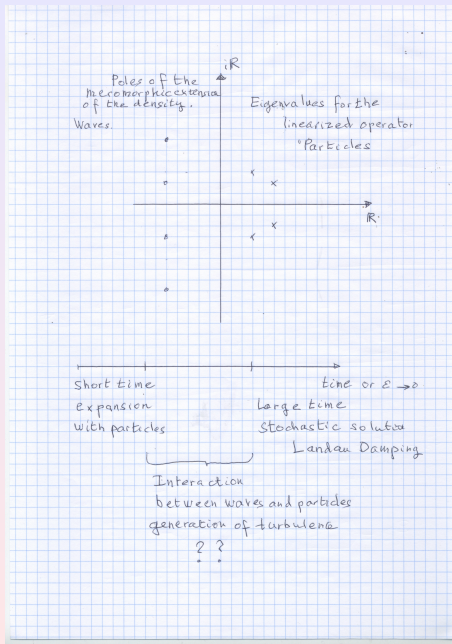 iR
Poles of the
meromorphic extension
of the density.
Waves.
Eigenvalues for the
linearized operator
Particles
R.
Short time
expansion
with particles
time or ε → 0
Large time
Stochastic solution
Landau Damping
Interaction
between waves and particles
generation of turbulence
? ?